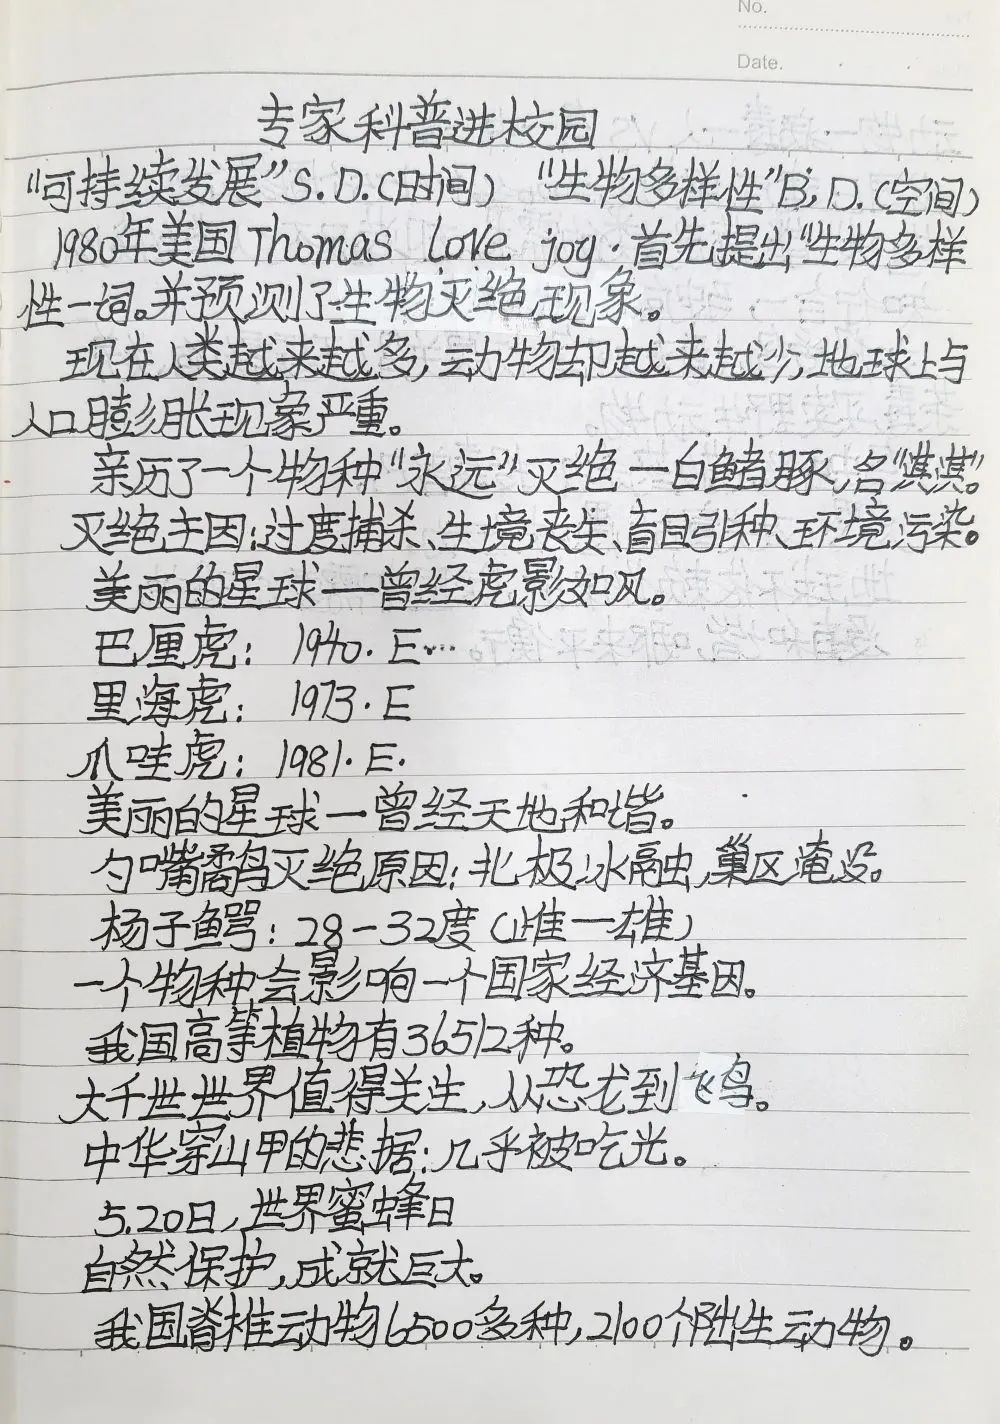 No.
Date.
专家科普进校园
“可持续发展”S.D.(时间) “生物多样性”B.D.(空间)
1980年美国Thomas Love joy·首先提出“生物多样
性一词。并预测了生物灭绝现象。
现在人类越来越多,动物却越来越少,地球上与
人口膨胀现象严重。
亲历了一个物种“永远”灭绝一白鳍豚,名“淇淇”。
灭绝主因:过度捕杀、生境丧失、盲目引种、环境污染。
美丽的星球——曾经虎影如风。
巴厘虎: 1940.E…
里海虎: 1973.E
爪哇虎: 1981.E.
美丽的星球一曾经天地和谐。
勺嘴鹬灭绝原因:北极冰融,巢区淹没。
杨子鳄:28-32度(雌一雄)
一个物种会影响一个国家经济基因。
我国高等植物有36512种。
大千世世界值得关生,从恐龙到飞鸟。
中华穿山甲的悲据:几乎被吃光。
5.20日,世界蜜蜂日
自然保护,成就巨大。
我国脊椎动物6500多种,2100个陆生动物。